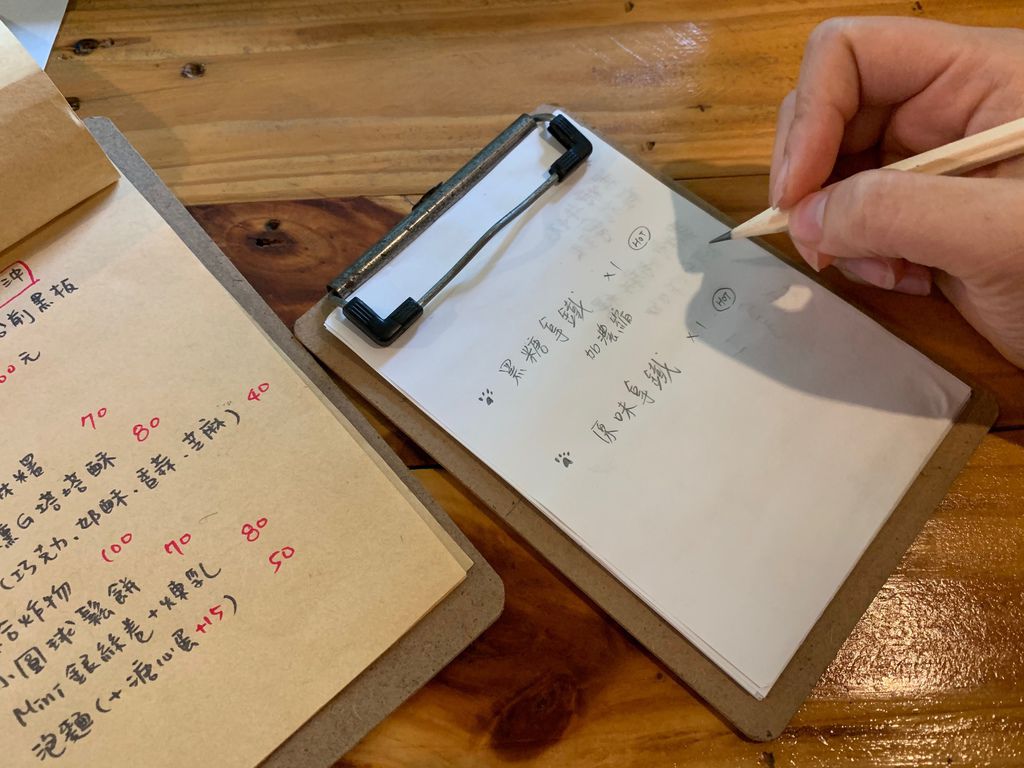 沖
黑板
00元
70
糬
80
薰G塔塔酥 40
(巧克力、奶酥、香蒜、芝麻)
合炸物 100
小圓球鬆餅 70
Mini 銀絲卷+煉乳 80
泡麵(+溏心蛋+15) 50
黑糖拿鐵 x1 HOT
加濃縮
原味拿鐵 x1 HOT